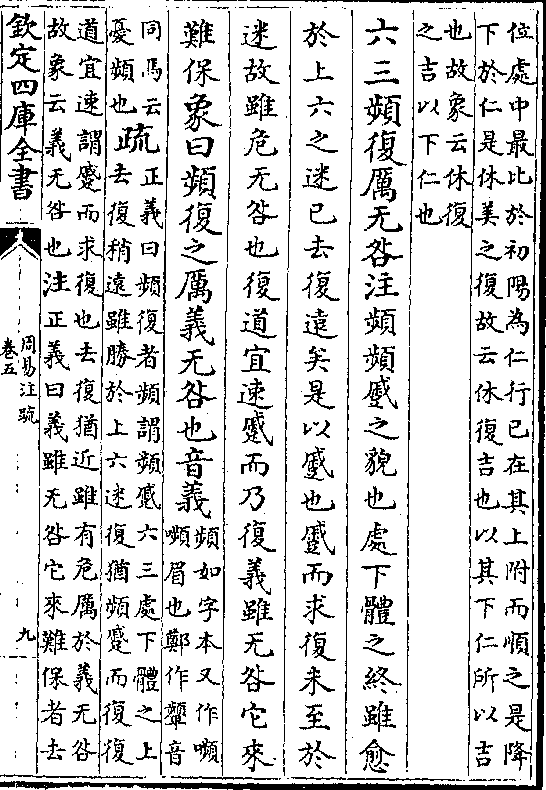 位處中最比於初陽為仁行已在其上附而順之是降
下於仁是休美之復故云休復吉也以其下仁所以吉
也故象云休復
之吉以下仁也
六三頻復厲无咎注頻頻蹙之貌也處下體之終雖愈
於上六之迷已去復遠矣是以蹙也蹙而求復未至於
迷故雖危无咎也復道宜速蹙而乃復義雖无咎它來
難保象曰頻復之厲義无咎也音義頻如字本又作嚬
嚬眉也鄭作顰音
同馬云
憂頻也疏正義曰頻復者頻謂頻蹙六三處下體之上
去復稍遠雖勝於上六迷復猶頻蹙而復復
道宜速謂蹙而求復也去復猶近雖有危厲於義无咎
故象云義无咎也注正義曰義雖无咎它來難保者去
欽定四庫全書
周易注疏
卷五
九